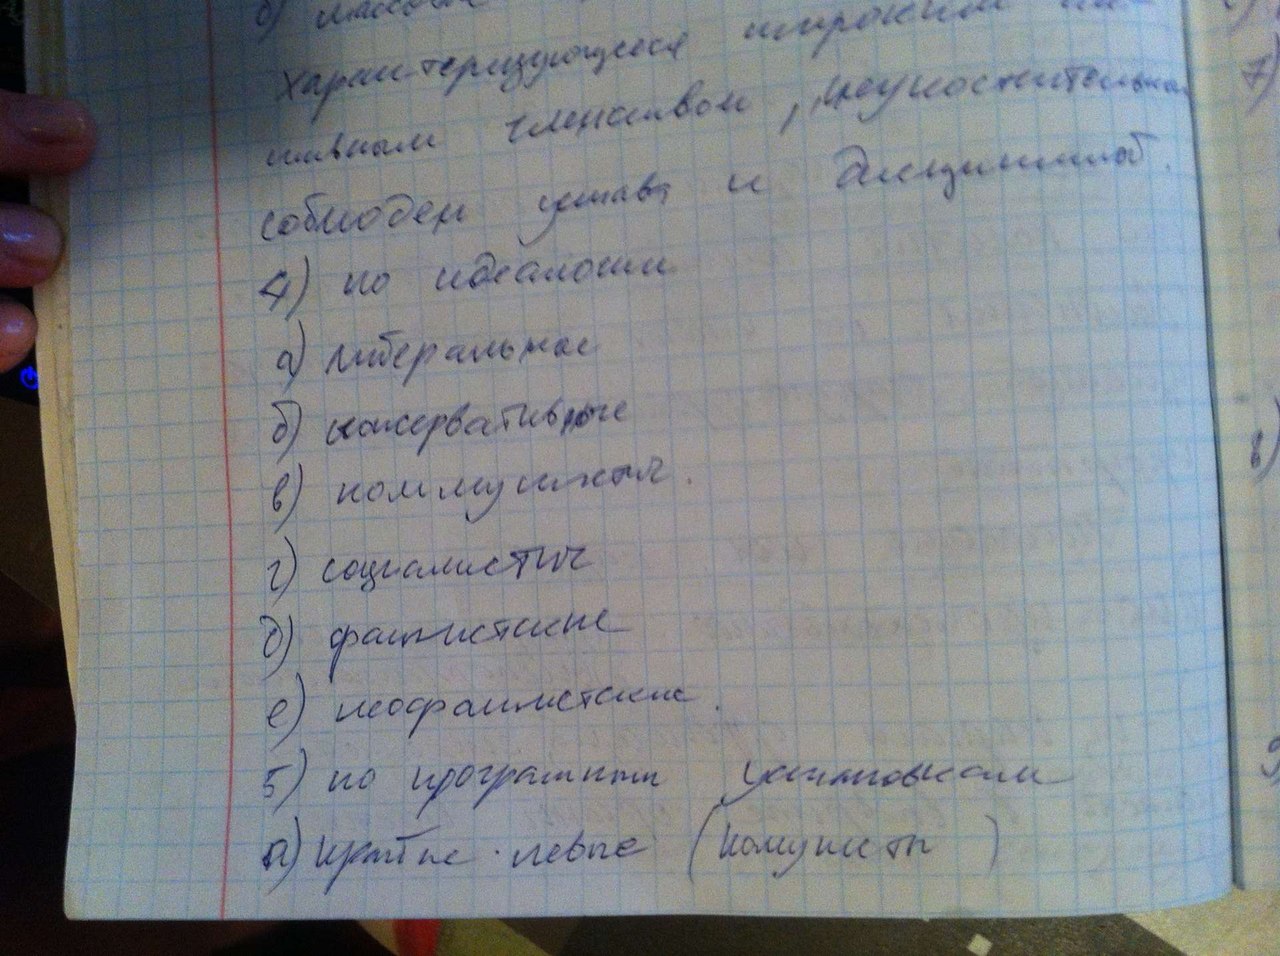 б) массовые
характеризующееся широким ак-
тивным членством, неукоснительна
соблюден устава и дисциплиной.
4) по идеалогии
а) либеральные
б) консервативные
в) коммунистич.
г) социалистич
д) фашистские
е) неофашистские.
5) по програмным установкам
а) крайне-левые (комунисты)
7)
в)
9